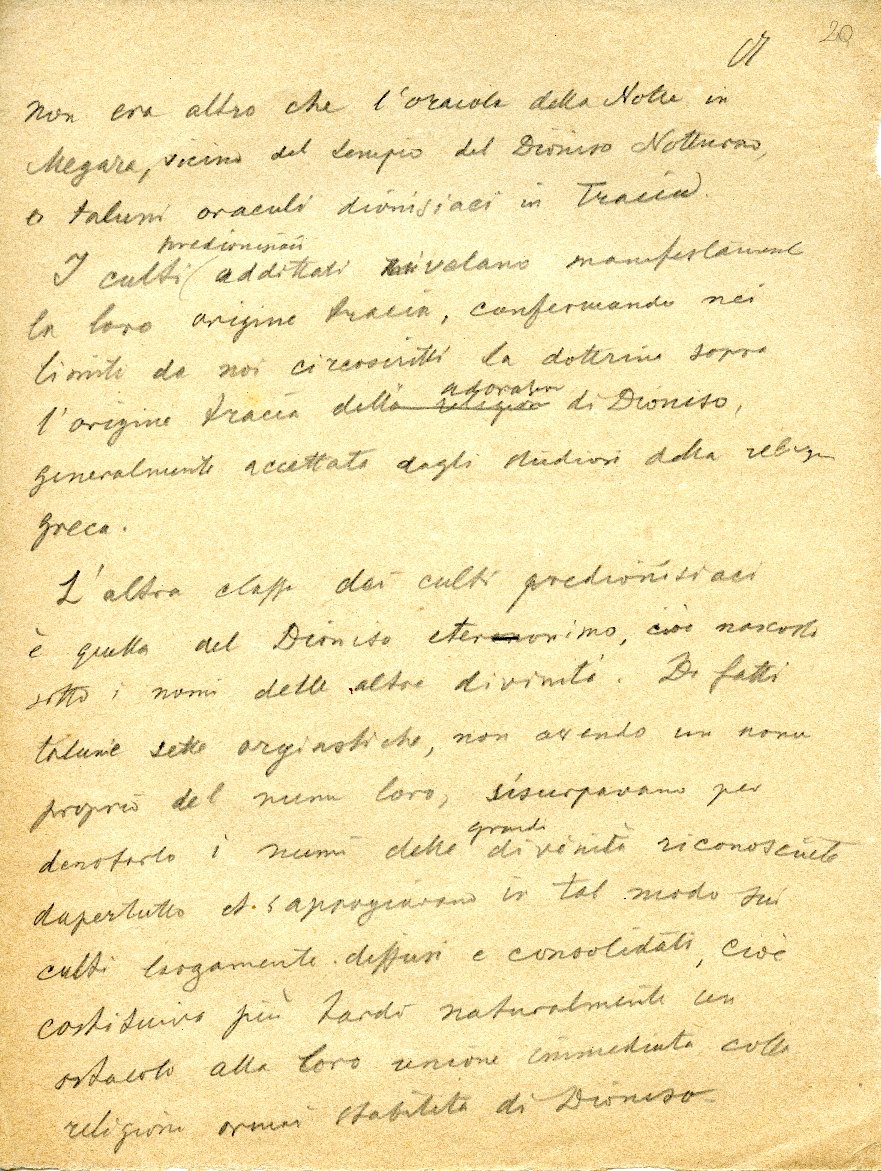 20
non era altro che l'oracolo della Notte in
Megara, vicino del tempio del Dioniso Notturno,
o taluni oraculi dionisiaci in Tracia.
predionisiaci
I culti additati rivelano manifestamente
la loro origine tracia, confermando nei
limiti da noi circoscritti la dottrina sopra
adorazione
l'origine tracia della religione di Dioniso,
generalmente accettata dagli studiosi della religione
greca.
L'altra classe dei culti predionisiaci
è quella del Dioniso eteronimo, cioè nascosto
sotto i nomi delle altre divinità. Di fatti
talune sette orgiastiche, non avendo un nome
proprio del nume loro, usurpavano per
grandi
denotarlo i numi delle divinità riconosciute
dapertutto et s'appoggiavano in tal modo sui
culti largamente diffusi e consolidati, cioè
costituiva più tardi naturalmente un
ostacolo alla loro unione immediata colla
religione ormai stabilita di Dioniso.